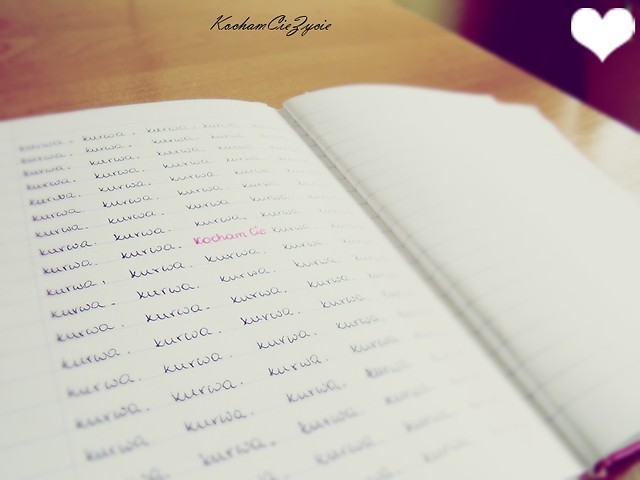 KochamCieŻycie
kurwa. kurwa. kurwa. kurwa.
kurwa. kurwa. kurwa. kurwa.
kurwa. kurwa. kurwa. kurwa.
kurwa. kurwa. kurwa. kurwa.
kurwa. kurwa. kurwa. kurwa.
kurwa. kurwa. kurwa. kurwa.
kurwa. kurwa. kurwa. kurwa.
kurwa. kurwa. kurwa. kurwa.
kurwa. kurwa. kocham Cię kurwa.
kurwa, kurwa. kurwa. kurwa.
kurwa. kurwa. kurwa. kurwa.
kurwa. kurwa. kurwa. kurwa.
kurwa. kurwa. kurwa. kurwa.
kurwa. kurwa. kurwa. kurwa.
kurwa. kurwa. kurwa. kurwa.
kurwa. kurwa. kurwa. kurwa.
kurwa. kurwa. kurwa. kurwa.